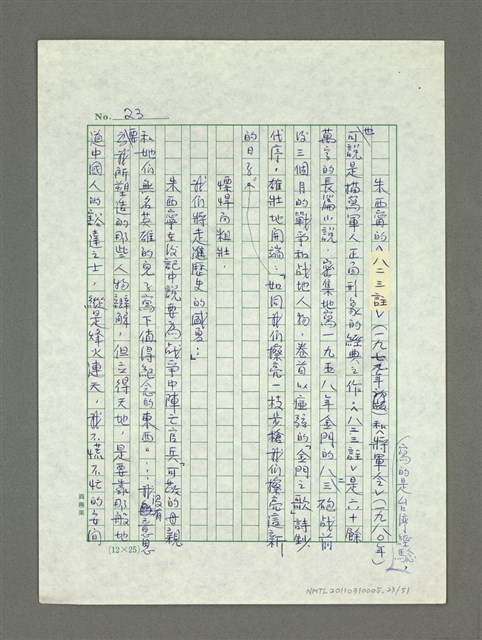 No. 23
朱西甯的〈八二三註〉(一九七九年初版)和〈將軍令〉(一九八〇年)
(寫的是台灣經驗),
也可說是描寫軍人正面形象的經典之作。〈八二三註〉是六十餘
萬言的長篇小說,密集地寫一九五八年金門的八二三砲戰前
後三個月的戰爭和戰地人物,卷首以瘂弦的「金門之歌」詩鈔
代序,雄壯地開端:「如同我們擦亮一枝步槍我們擦亮這新
的日子
慓悍而粗壯,
我們將走進歷史的盛夏…」
朱西甯在後記中說要為戰爭中陣亡官兵「可敬的母親
和她們無名英雄的兒子寫下值得紀念的東西。…我沒有意思
要為我所塑造的那些人物辯解,但立得天地,是要靠那般地
道中國人的豁達之士,縱是烽火連天,我不慌不忙的安闲
(12×25)
NMTL20110310005.23/51